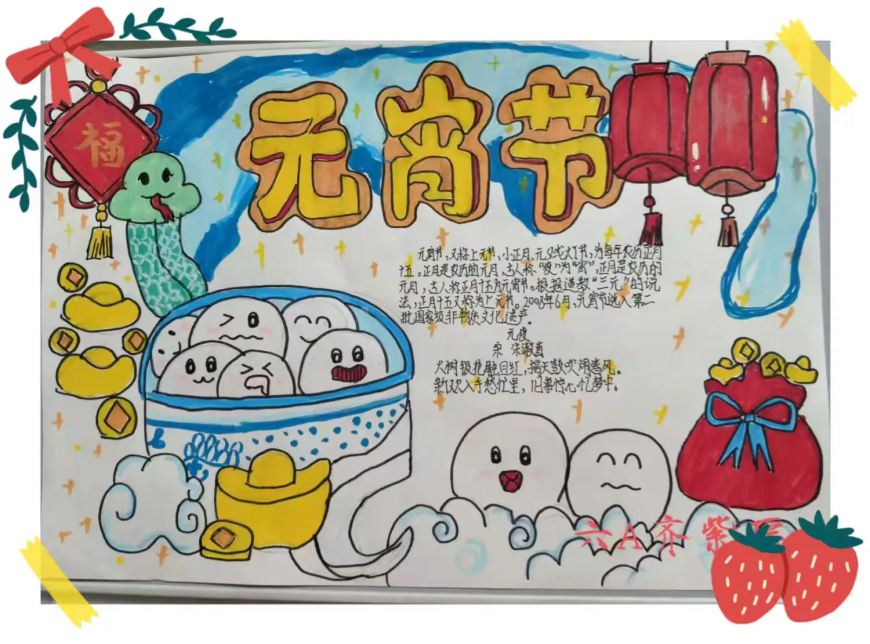 福
元宵节
元宵节,又称上元节,小正月、元夕或灯节,为每年农历正月
十五。正月是农历的元月,古人称"夜"为"宵",正月是农历的
元月,古人称正月十五为元宵节。根据道教"三元"的说
法,正月十五又称为上元节。2008年6月,元宵节选入第二
批国家级非物质文化遗产。
元夜
宋 朱淑真
火树银花触目红,揭天鼓吹闹春风。
新欢入手愁忙里,旧事惊心忆梦中。
六A 齐紫